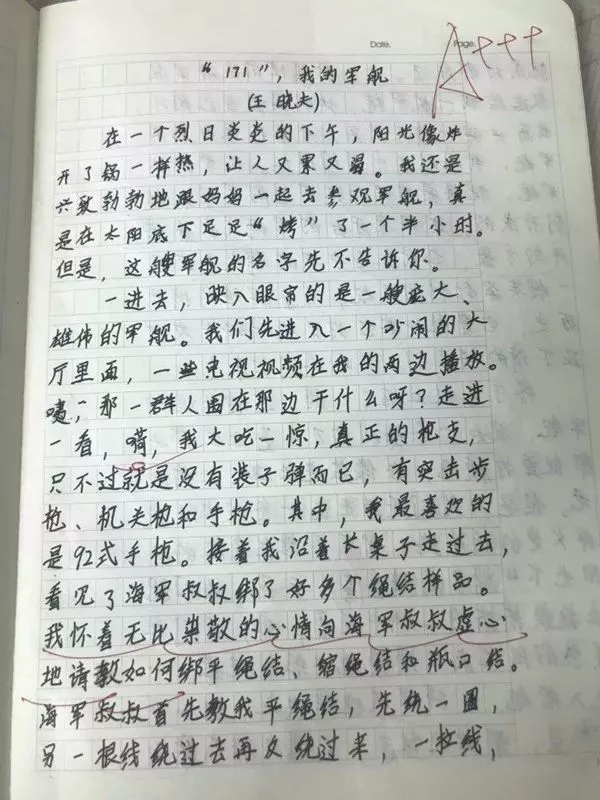 Date.
Page.
A+++
“171”，我的军舰
(王晓夫)
在一个烈日炎炎的下午，阳光像炸
开了锅一样热，让人又累又弱。我还是
兴致勃勃地跟妈妈一起去参观军舰，真
是在太阳底下足足“烤”了一个半小时。
但是，这艘军舰的名字先不告诉你。
一进去，映入眼帘的是一艘庞大、
雄伟的军舰。我们先进入一个吵闹的大
厅里面，一些电视视频在我的两边播放。
咦，那一群人围在那边干什么呀？走进
一看，嗬，我大吃一惊，真正的枪支，
只不过就是没有装子弹而已，有突击步
枪、机关枪和手枪。其中，我最喜欢的
是92式手枪。接着我沿着长桌子走过去，
看见了海军叔叔绑了好多个绳结样品。
我怀着无比崇敬的心情向海军叔叔虚心
地请教如何绑平绳结、缩绳结和瓶口结。
海军叔叔首先教我平绳结，先绕一圈，
另一根线绕过去再又绕过来，一拉线，